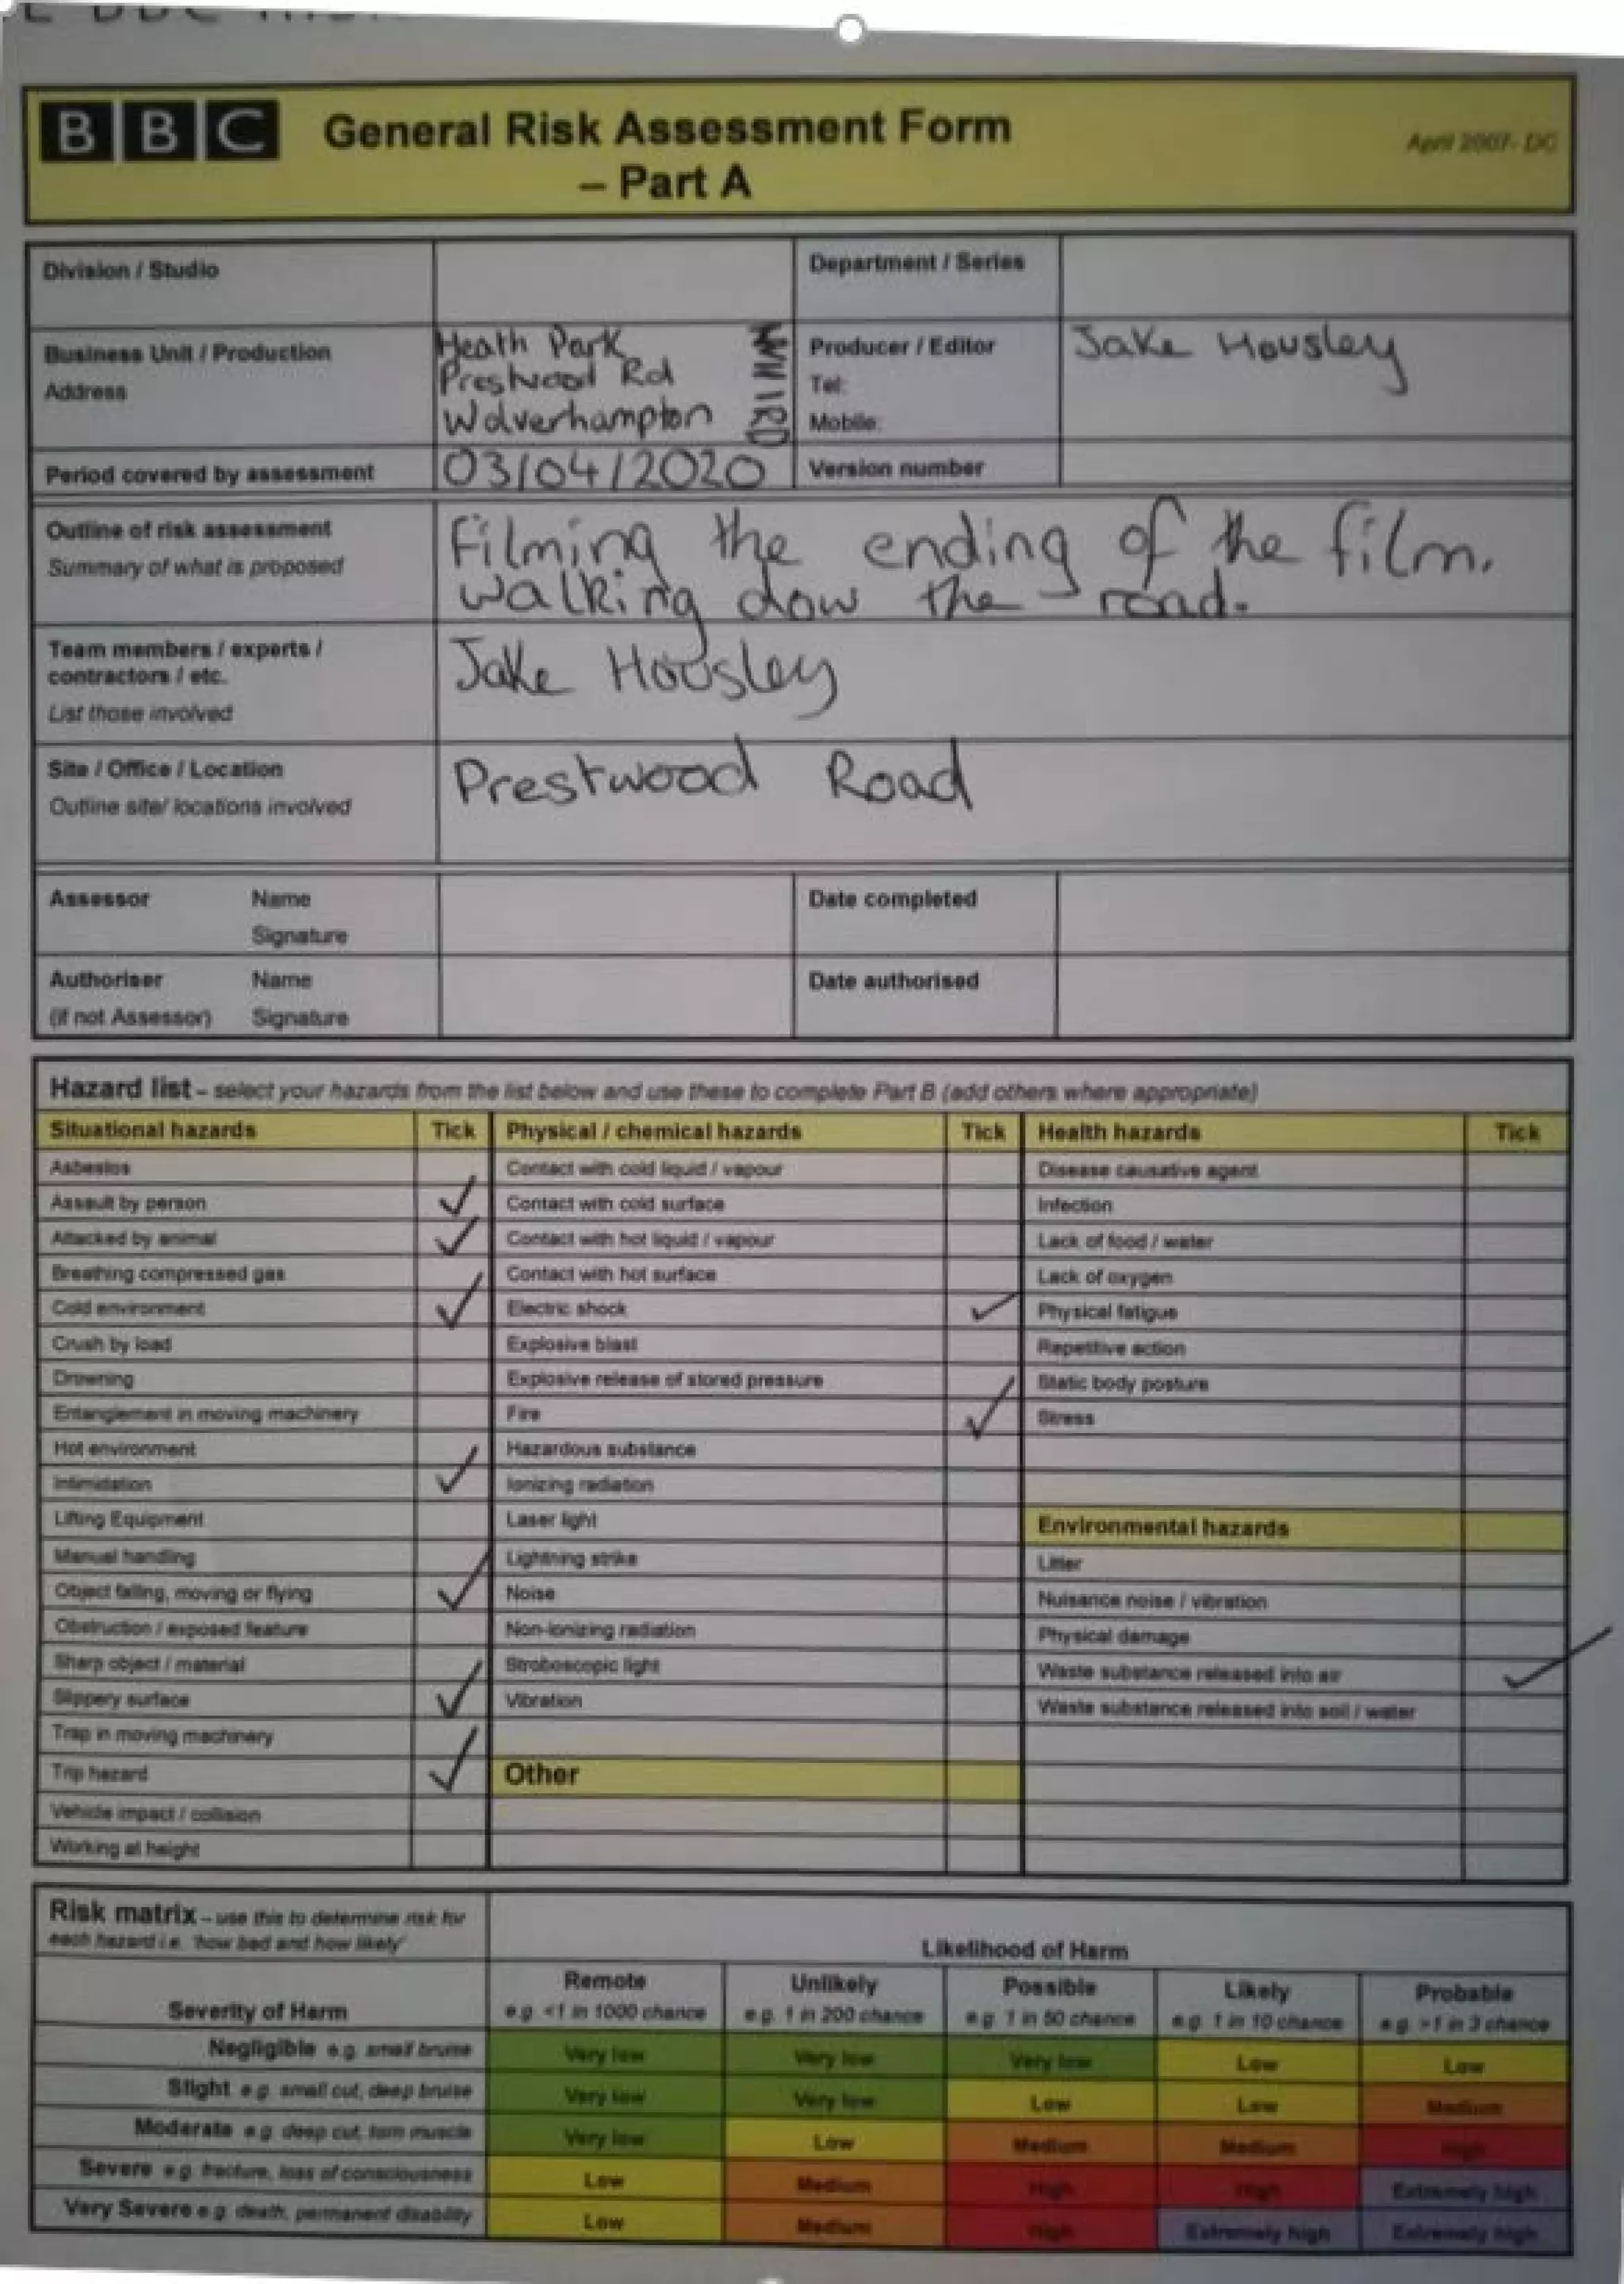 BBC General Risk Assessment Form
– Part A
April 2007- DC
Division / Studio
Department / Series
Business Unit / Production
Address
Heath Park
Prestwood Rd
Wolverhampton
1RD
Producer / Editor
Tel:
Mobile:
Jake Housley
Period covered by assessment 03/04/2020 Version number
Outline of risk assessment
Summary of what is proposed
Filming the ending of the film.
walking dow the road.
Team members / experts /
contractors / etc.
List those involved
Jake Housley
Site / Office / Location
Outline site/ locations involved
Prestwood Road
Assessor Name
Signature
Date completed
Authoriser Name
(if not Assessor) Signature
Date authorised
Hazard list – select your hazards from the list below and use these to complete Part B (add others where appropriate)
Situational hazards Tick Physical / chemical hazards Tick Health hazards Tick
Asbestos Contact with cold liquid / vapour Disease causative agent
Assault by person ✓ Contact with cold surface Infection
Attacked by animal ✓ Contact with hot liquid / vapour Lack of food / water
Breathing compressed gas Contact with hot surface Lack of oxygen
Cold environment ✓ Electric shock ✓ Physical fatigue
Crush by load Explosive blast Repetitive action
Drowning Explosive release of stored pressure Static body posture
Entanglement in moving machinery Fire ✓ Stress
Hot environment Hazardous substance
Intimidation ✓ Ionizing radiation
Lifting Equipment Laser light Environmental hazards
Manual handling Lightning strike Litter
Object falling, moving or flying ✓ Noise Nuisance noise / vibration
Obstruction / exposed feature Non-ionizing radiation Physical damage
Sharp object / material Stroboscopic light Waste substance released into air ✓
Slippery surface ✓ Vibration Waste substance released into soil / water
Trap in moving machinery
Trip hazard ✓ Other
Vehicle impact / collision
Working at height
Risk matrix – use this to determine risk for
each hazard i.e. 'how bad and how likely'
Likelihood of Harm
Severity of Harm
Remote Unlikely Possible Likely Probable
e.g. <1 in 1000 chance e.g. 1 in 200 chance e.g. 1 in 50 chance e.g. 1 in 10 chance e.g. >1 in 3 chance
Negligible e.g. small bruise Very low Very low Very low Low Low
Slight e.g. small cut, deep bruise Very low Very low Low Low Medium
Moderate e.g. deep cut, torn muscle Very low Low Medium Medium High
Severe e.g. fracture, loss of consciousness Low Medium High High Extremely high
Very Severe e.g. death, permanent disability Low Medium High Extremely high Extremely high